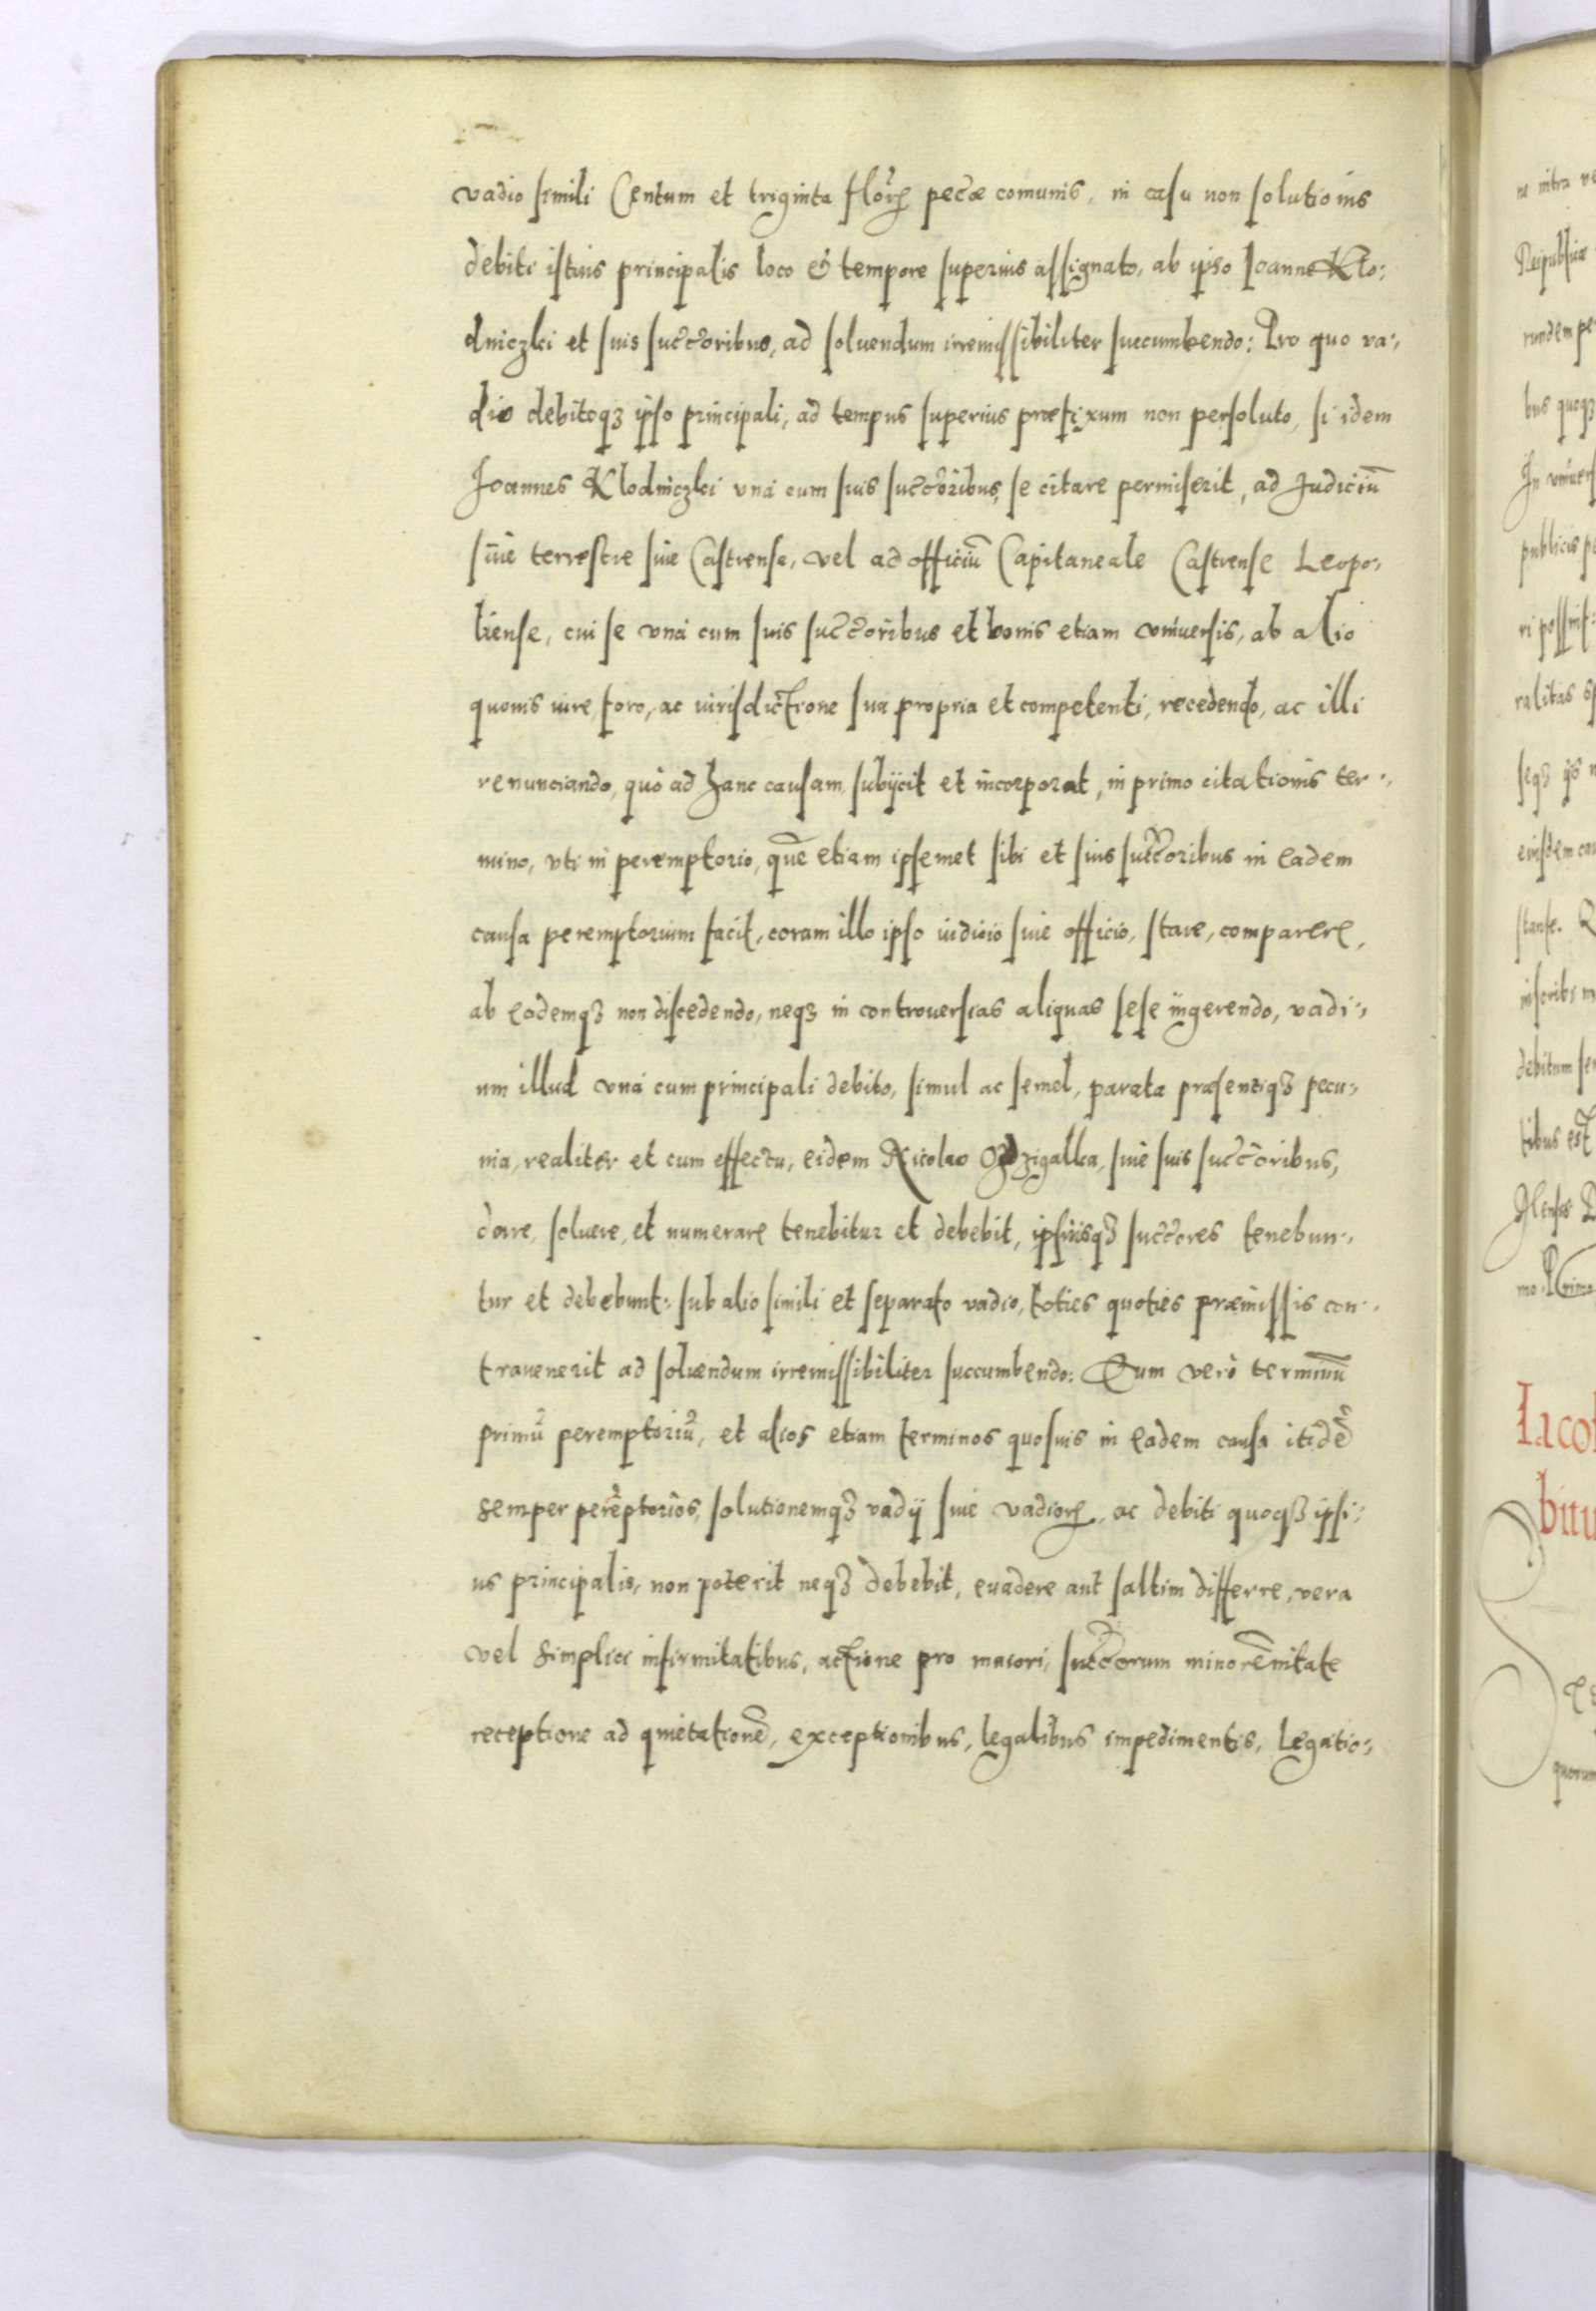 vadio simili Centum et triginta florꝝ pecĩæ comunis, in casu non solutionis
debiti istius principalis loco & tempore superius assignato, ab ipso Ioanne Klo:
dniczki et suis succ̃oribus, ad soluendum irremissibiliter succumbendo: Pro quo va:,
dio debitoqꝫ ipso principali, ad tempus superius præfixum non persoluto, si idem
Joannes Klodniczki unà cum suis succ̃oribus, se citare permiserit, ad Judiciũ
siue terrestre siue Castrense, vel ad officiũ Capitaneale Castrense Leopo:,
liense, cui se unà cum suis succ̃oribus et bonis etiam vniuersis, ab alio
quouis iure, foro, ac iurisdictione sua propria et competenti, recedendo, ac illi
renunciando, quò ad hanc causam, subijcit et incorporat, in primo citationis ter:,
mino, vti in peremptorio, quẽ etiam ipsemet sibi et suis succ̃oribus in eadem
causa peremptorium facit, coram illo ipso iudicio siue officio, stare, comparere,
ab eodemqꝫ non discedendo, neqꝫ in controuersias aliquas sese ingerendo, vadi:,
um illud vnà cum principali debito, simul ac semel, parata præsentiqꝫ pecu:,
nia, realiter et cum effectu, eidem Nicolao Ozdzigalka, siue suis succ̃oribus,
dare, soluere, et numerare tenebitur et debebit, ipsiusqꝫ succ̃ores tenebun:,
tur et debebunt: sub alio simili et separato vadio, toties quoties præmissis con:,
trauenerit ad soluendum irremissibiliter succumbendo: Eum verò terminũ
primũ peremptoriũ, et alios etiam terminos quosuis in eadem causa itidẽ
semper perẽptorios, solutionemqꝫ vadij siue vadiorꝝ, ac debiti quoqꝫ ipsi:
us principalis, non poterit neqꝫ debebit, euadere aut saltim differre, vera
vel simplici infirmitatibus, actione pro maiori, succ̃orum minorẽnitate
receptione ad quietationẽ, exceptionibus, legalibus impedimentis, Legatio:,